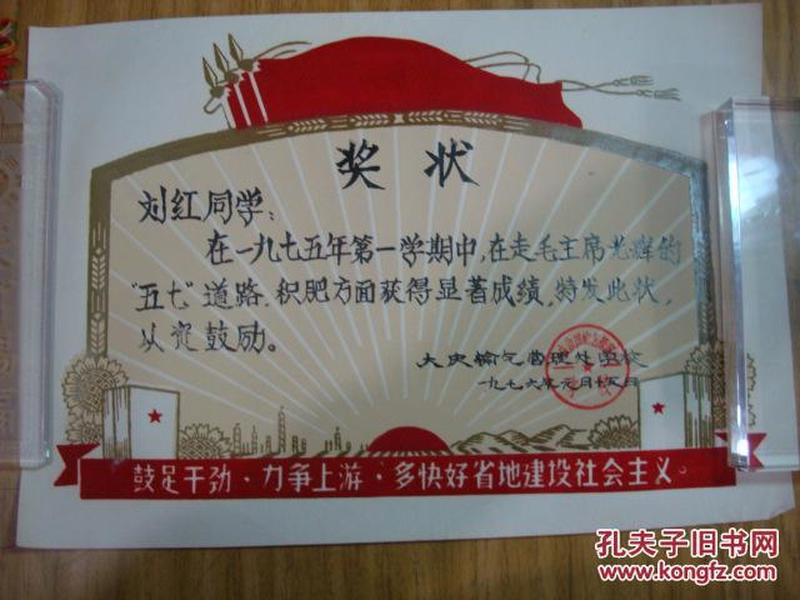 奖状
刘红同学：
在一九七五年第一学期中，在走毛主席光辉的
"五七"道路，积肥方面获得显著成绩，特发此状，
以资鼓励。
大庆输气管理处学校
一九七六年元月十五日
鼓足干劲·力争上游·多快好省地建设社会主义。
孔夫子旧书网
www.kongfz.com